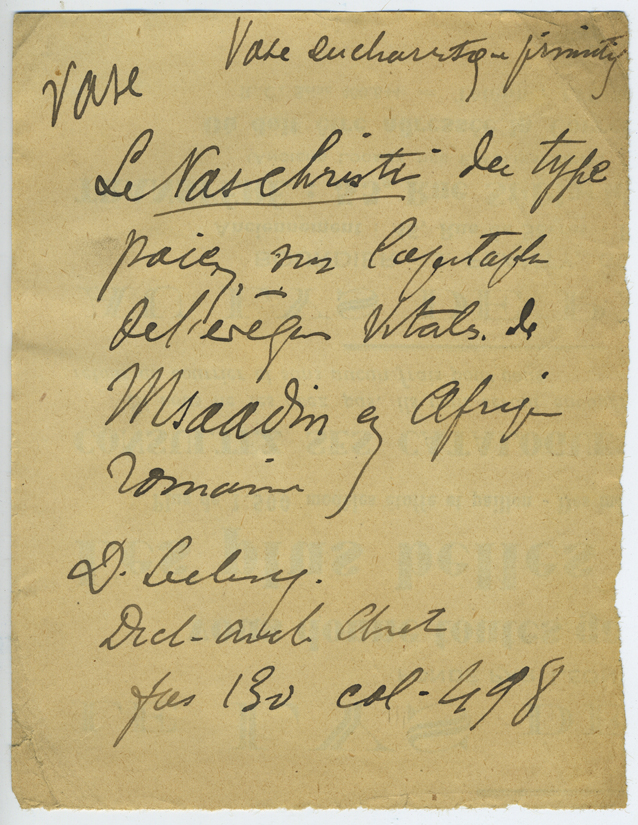 Vase eucharistique primitif
Vase
Le Vas christi du type
païen sur l'épitaphe
de l'évêque Vitalis de
Msaadin en Afrique
romaine
D. Leclercq.
Dict. arch. Chret
fas 130 col. 498